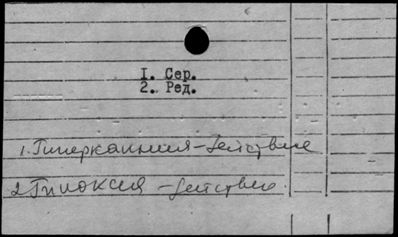 I. Сер.
2. Ред.
1. Гиперкапния – действие
2. Гипоксия – действие.